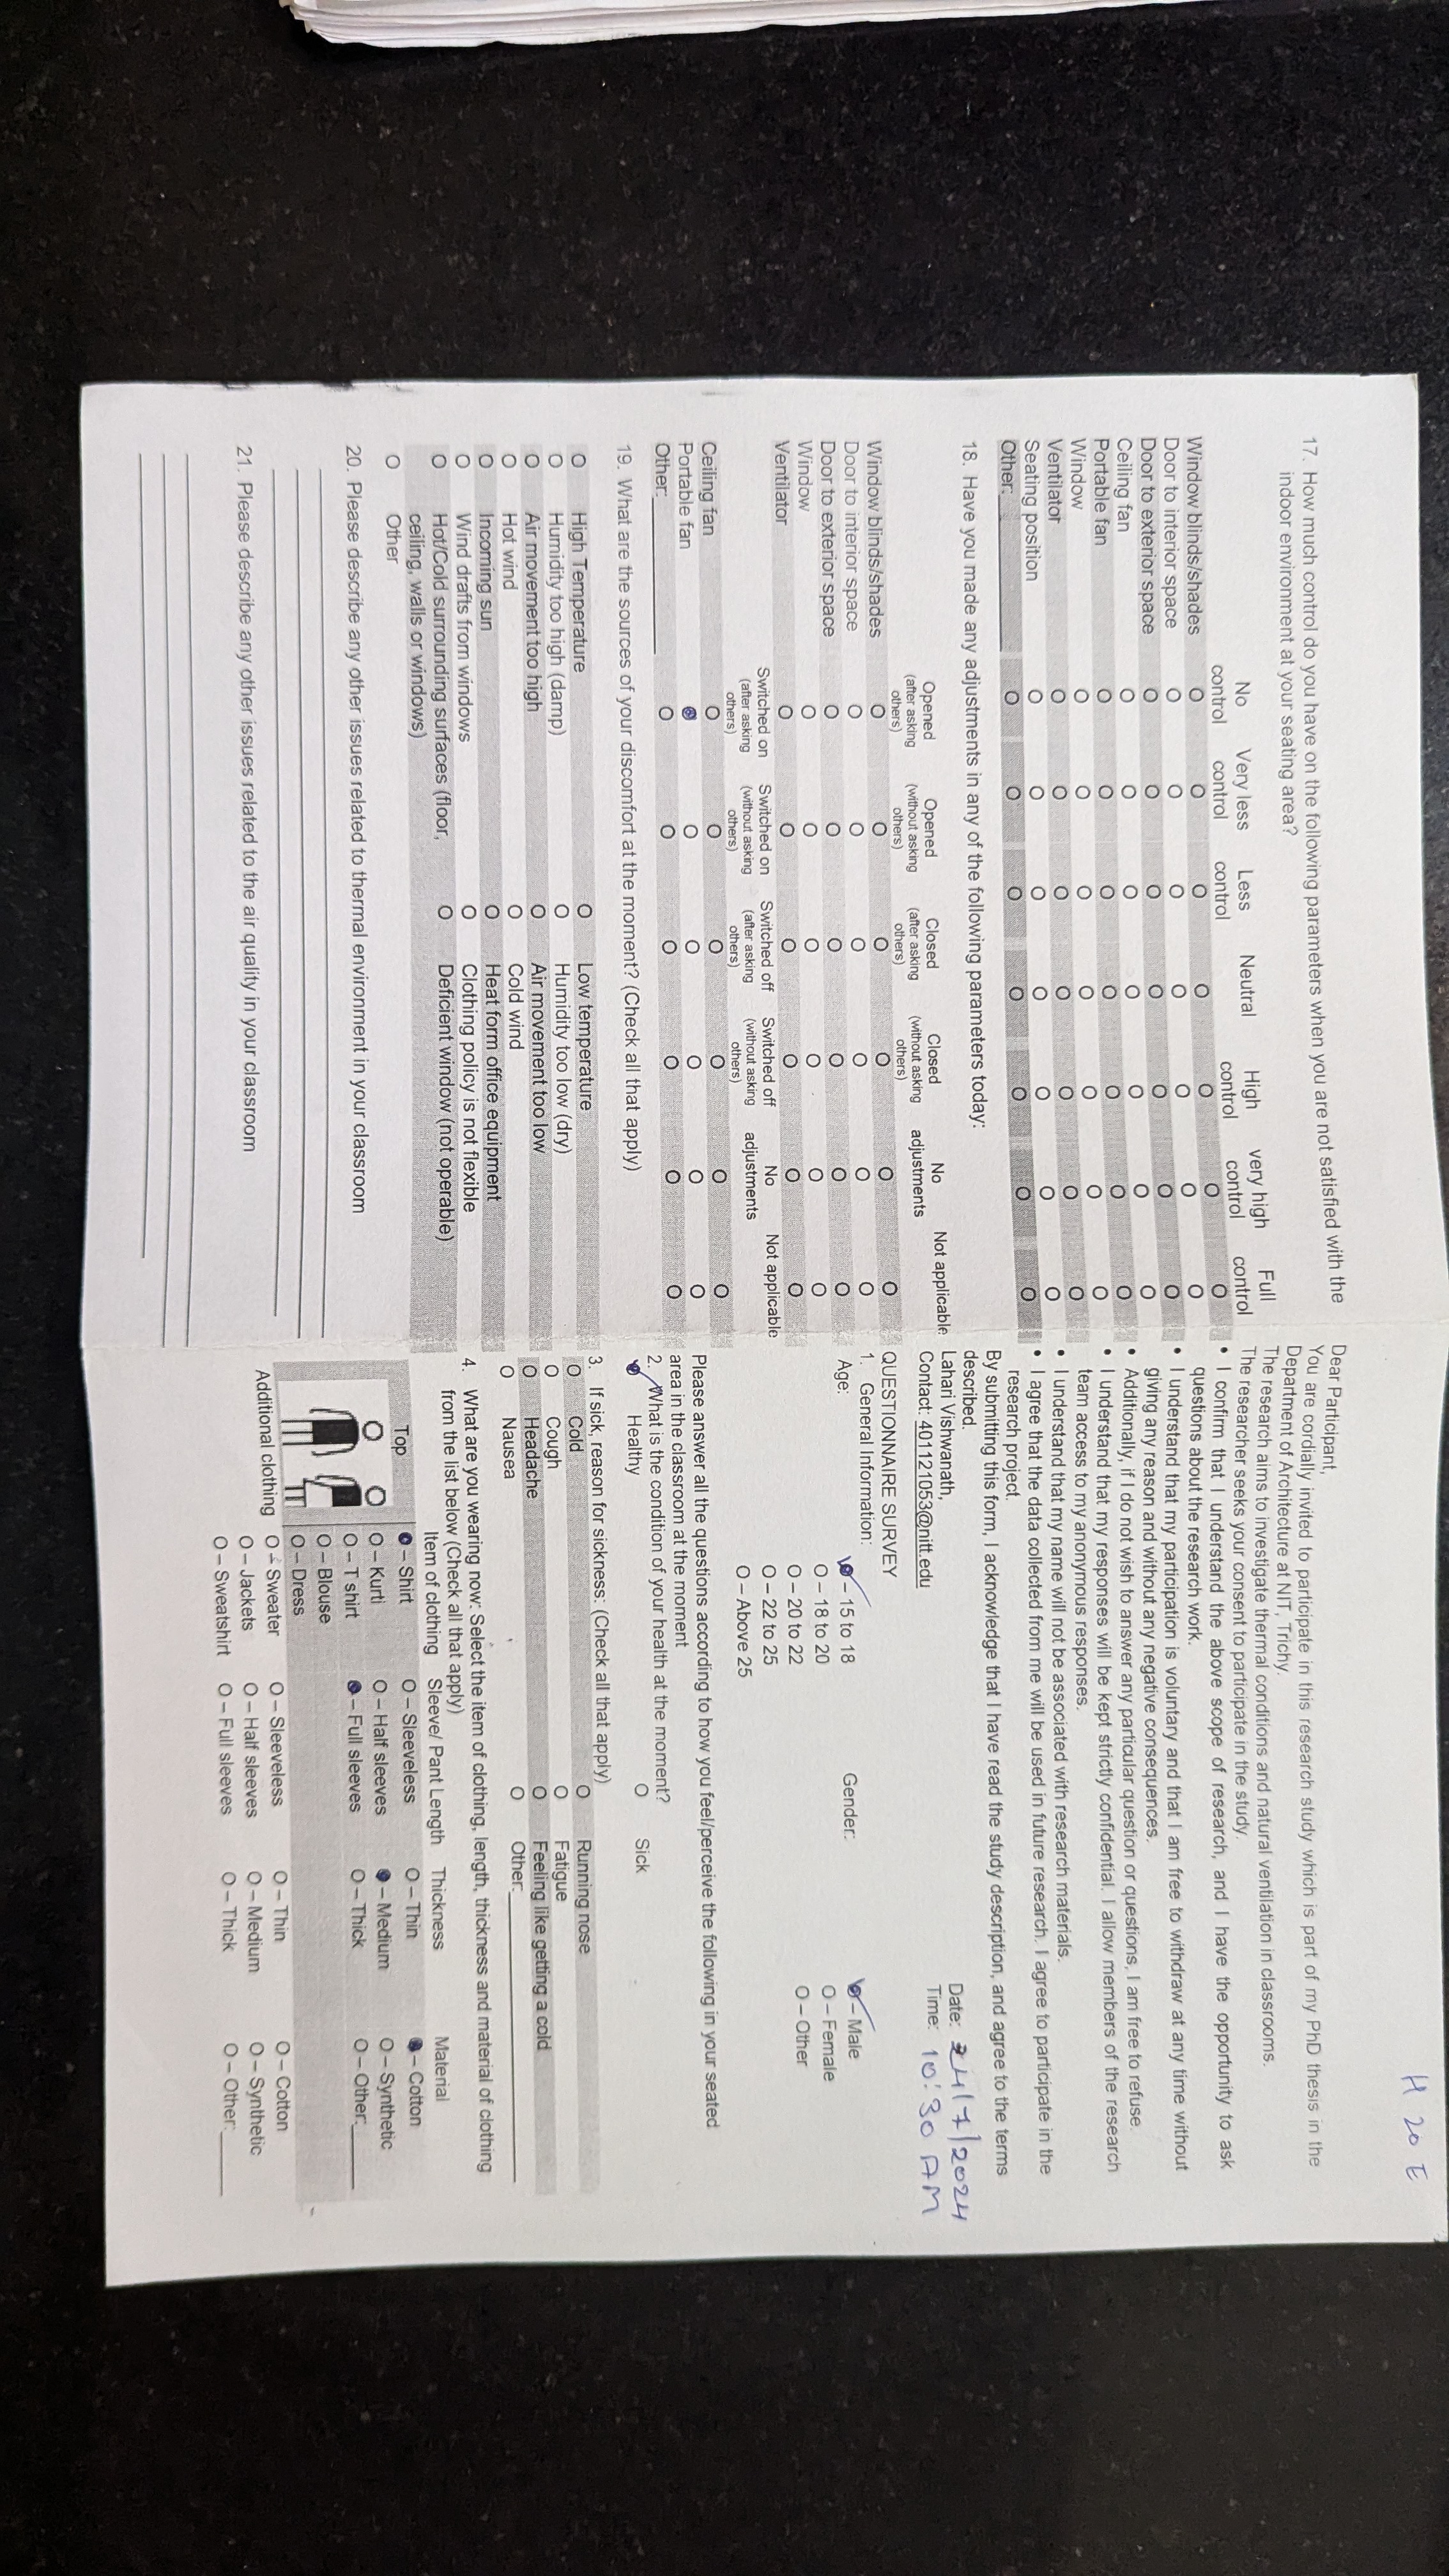 17. How much control do you have on the following parameters when you are not satisfied with the
indoor environment at your seating area?
No control Very less control Less control Neutral High control very high control Full control
Window blinds/shades O O O O O O O
Door to interior space O O O O O O O
Door to exterior space O O O O O O O
Ceiling fan O O O O O O O
Portable fan O O O O O O O
Window O O O O O O O
Ventilator O O O O O O O
Seating position O O O O O O O
Other: O O O O O O O
18. Have you made any adjustments in any of the following parameters today:
Opened (after asking others) Opened (without asking others) Closed (after asking others) Closed (without asking others) No adjustments Not applicable
Window blinds/shades O O O O O O
Door to interior space O O O O O O
Door to exterior space O O O O O O
Window O O O O O O
Ventilator O O O O O O
Switched on (after asking others) Switched on (without asking others) Switched off (after asking others) Switched off (without asking others) No adjustments Not applicable
Ceiling fan O O O O O O
Portable fan O O O O O O
Other: O O O O O O
19. What are the sources of your discomfort at the moment? (Check all that apply)
O High Temperature O Low temperature
O Humidity too high (damp) O Humidity too low (dry)
O Air movement too high O Air movement too low
O Hot wind O Cold wind
O Incoming sun O Heat form office equipment
O Wind drafts from windows O Clothing policy is not flexible
O Hot/Cold surrounding surfaces (floor, O Deficient window (not operable)
ceiling, walls or windows)
O Other
20. Please describe any other issues related to thermal environment in your classroom
21. Please describe any other issues related to the air quality in your classroom
H 20 E
Dear Participant,
You are cordially invited to participate in this research study which is part of my PhD thesis in the
Department of Architecture at NIT, Trichy.
The research aims to investigate thermal conditions and natural ventilation in classrooms.
The researcher seeks your consent to participate in the study.
• I confirm that I understand the above scope of research, and I have the opportunity to ask
questions about the research work.
• I understand that my participation is voluntary and that I am free to withdraw at any time without
giving any reason and without any negative consequences.
• Additionally, if I do not wish to answer any particular question or questions, I am free to refuse.
• I understand that my responses will be kept strictly confidential. I allow members of the research
team access to my anonymous responses.
• I understand that my name will not be associated with research materials.
• I agree that the data collected from me will be used in future research. I agree to participate in the
research project.
By submitting this form, I acknowledge that I have read the study description, and agree to the terms
described.
Lahari Vishwanath, Date: 24/7/2024
Contact: 401121053@nitt.edu Time: 10:30 AM
QUESTIONNAIRE SURVEY
1. General Information:
Age: O – 15 to 18 Gender: O – Male
O – 18 to 20 O – Female
O – 20 to 22 O – Other
O – 22 to 25
O – Above 25
Please answer all the questions according to how you feel/perceive the following in your seated
area in the classroom at the moment
2. What is the condition of your health at the moment?
O Healthy O Sick
3. If sick, reason for sickness: (Check all that apply)
O Cold O Running nose
O Cough O Fatigue
O Headache O Feeling like getting a cold
O Nausea O Other:
4. What are you wearing now: Select the item of clothing, length, thickness and material of clothing
from the list below (Check all that apply)
Item of clothing Sleeve/ Pant Length Thickness Material
Top O – Shirt O – Sleeveless O – Thin O – Cotton
O – Kurti O – Half sleeves O – Medium O – Synthetic
O – T shirt O – Full sleeves O – Thick O – Other:
O – Blouse
O – Dress
Additional clothing O – Sweater O – Sleeveless O – Thin O – Cotton
O – Jackets O – Half sleeves O – Medium O – Synthetic
O – Sweatshirt O – Full sleeves O – Thick O – Other: